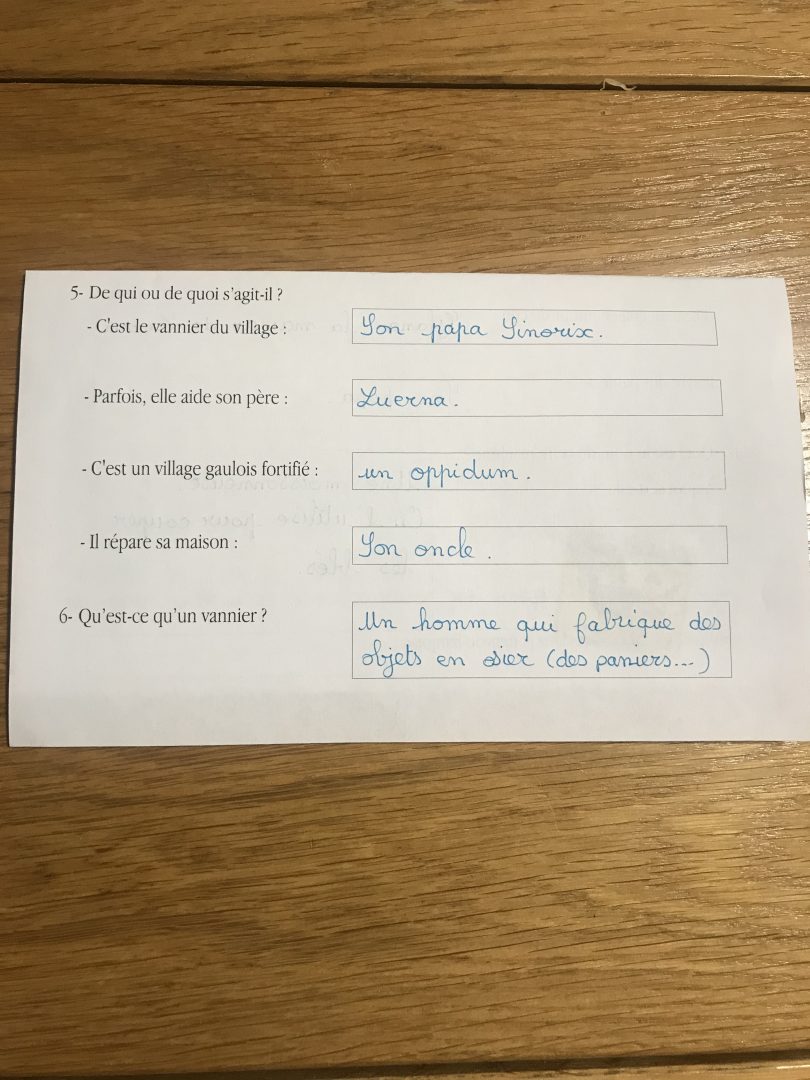 5- De qui ou de quoi s'agit-il ?
- C'est le vannier du village : Son papa Sinorix.
- Parfois, elle aide son père : Luerna.
- C'est un village gaulois fortifié : un oppidum.
- Il répare sa maison : Son oncle.
6- Qu'est-ce qu'un vannier ? Un homme qui fabrique des
objets en osier (des paniers...)